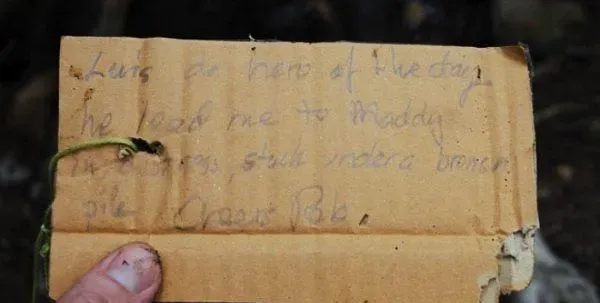 Luis da hero of the day
he lead me to Maddy
stuck under a
pile Cheers Bob.